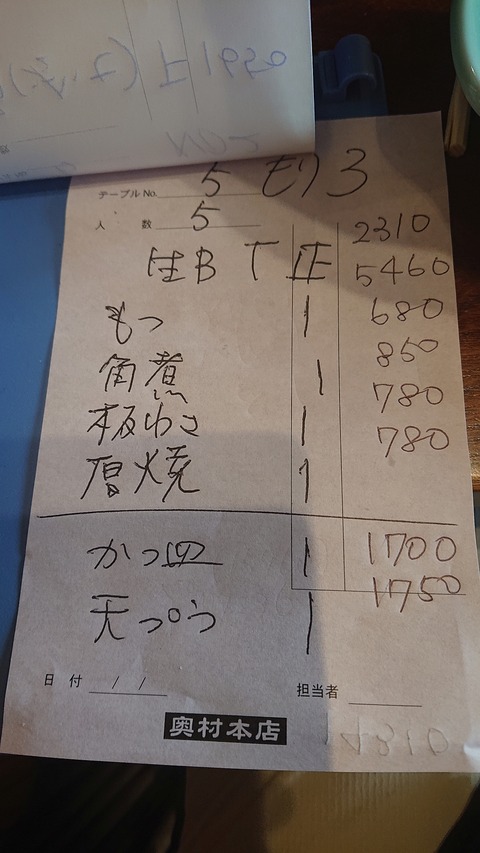 1950
テーブルNo. 5 モリ3
人数 5
2310
生B T 正 5460
もつ 1 680
角煮 1 850
板わさ 1 780
厚焼 1 780
かつ皿 1 1700
天っぷら 1 1750
日付 / /
担当者
奥村本店
14310